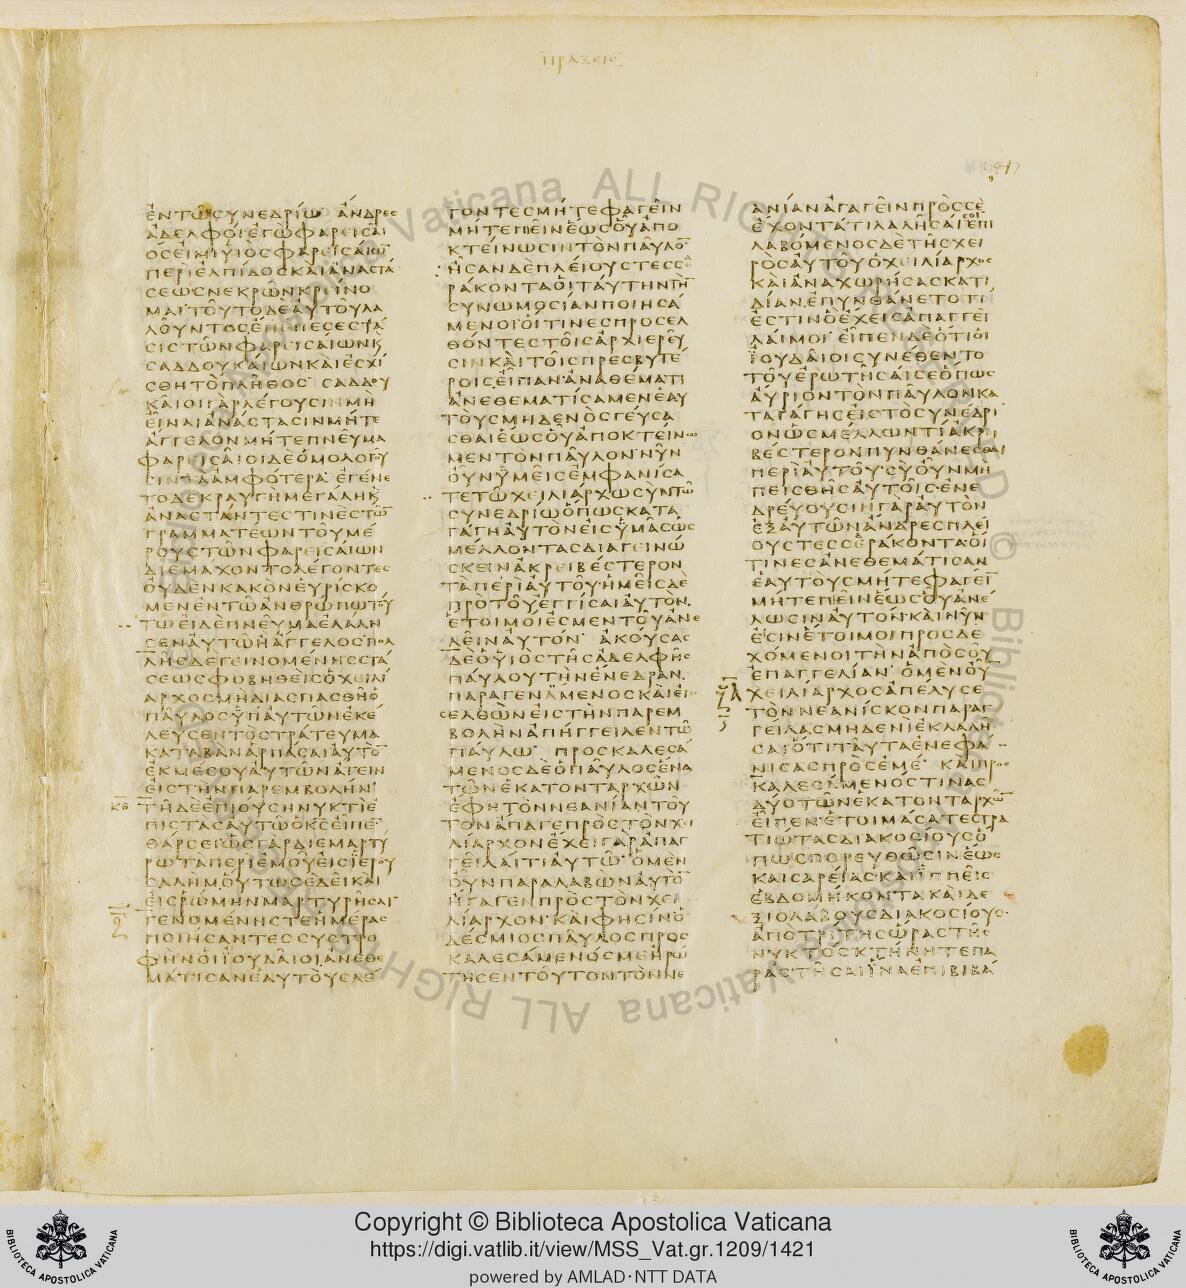 ΠΡΑΞΕΙΣ
1417
ΕΝΤΩΣΥΝΕΔΡΙΩ ΑΝΔΡΕΣ
ΑΔΕΛΦΟΙΕΓΩΦΑΡΕΙΣΑΙ
ΟΣΕΙΜΙΥΙΟΣΦΑΡΕΙΣΑΙΩ̅
ΠΕΡΙΕΛΠΙΔΟΣΚΑΙΑΝΑΣΤΑ
ΣΕΩΣΝΕΚΡΩΝΚΡΕΙΝΟ
ΜΑΙ ΤΟΥΤΟΔΕΑΥΤΟΥΛΑ
ΛΟΥΝΤΟΣΕΠΕΠΕΣΕΣΤΑ
ΣΙΣΤΩΝΦΑΡΕΙΣΑΙΩΝΚ
ΣΑΔΔΟΥΚΑΙΩΝΚΑΙΕΣΧΙ
ΣΘΗΤΟΠΛΗΘΟΣ ΣΑΔΔΟΥ
ΚΑΙΟΙΓΑΡΛΕΓΟΥΣΙΝΜΗ
ΕΙΝΑΙΑΝΑΣΤΑΣΙΝΜΗΤΕ
ΑΓΓΕΛΟΝΜΗΤΕΠΝΕΥΜΑ
ΦΑΡΕΙΣΑΙΟΙΔΕΟΜΟΛΟΓΟΥ
ΣΙΝΤΑΑΜΦΟΤΕΡΑ ΕΓΕΝΕ
ΤΟΔΕΚΡΑΥΓΗΜΕΓΑΛΗΚ
ΑΝΑΣΤΑΝΤΕΣΤΙΝΕΣΤΩ̅
ΓΡΑΜΜΑΤΕΩΝΤΟΥΜΕ
ΡΟΥΣΤΩΝΦΑΡΕΙΣΑΙΩΝ
ΔΙΕΜΑΧΟΝΤΟΛΕΓΟΝΤΕΣ
ΟΥΔΕΝΚΑΚΟΝΕΥΡΙΣΚΟ
ΜΕΝΕΝΤΩΑΝΘΡΩΠΩΤΟΥ
ΤΩΕΙΔΕΠΝΕΥΜΑΕΛΑΛΗ
ΣΕΝΑΥΤΩΗΑΓΓΕΛΟΣ ΠΟΛ
ΛΗΣΔΕΓΕΙΝΟΜΕΝΗΣΣΤΑ
ΣΕΩΣΦΟΒΗΘΕΙΣΟΧΕΙΛΙ
ΑΡΧΟΣΜΗΔΙΑΣΠΑΣΘΗΟ
ΠΑΥΛΟΣΥΠΑΥΤΩΝΕΚΕ
ΛΕΥΣΕΝΤΟΣΤΡΑΤΕΥΜΑ
ΚΑΤΑΒΑΝΑΡΠΑΣΑΙΑΥΤΟ̅
ΕΚΜΕΣΟΥΑΥΤΩΝΑΓΕΙΝ
ΕΙΣΤΗΝΠΑΡΕΜΒΟΛΗΝ
ΤΗΔΕΕΠΙΟΥΣΗΝΥΚΤΙΕ
ΠΙΣΤΑΣΑΥΤΩΟΚ̅Σ̅ΕΙΠΕ̅
ΘΑΡΣΕΙΩΣΓΑΡΔΙΕΜΑΡΤΥ
ΡΩΤΑΠΕΡΙΕΜΟΥΕΙΣΪΕΡΟΥ
ΣΑΛΗΜ·ΟΥΤΩΣΕΔΕΙΚΑΙ
ΕΙΣΡΩΜΗΝΜΑΡΤΥΡΗΣΑΙ
ΓΕΝΟΜΕΝΗΣΤΕΗΜΕΡΑΣ
ΠΟΙΗΣΑΝΤΕΣΣΥΣΤΡΟ
ΦΗΝΟΙΪΟΥΔΑΙΟΙΑΝΕΘΕ
ΜΑΤΙΣΑΝΕΑΥΤΟΥΣΛΕ
ΓΟΝΤΕΣΜΗΤΕΦΑΓΕΙΝ
ΜΗΤΕΠΕΙΝΕΩΣΟΥΑΠΟ
ΚΤΕΙΝΩΣΙΝΤΟΝΠΑΥΛΟ̅
ΗΣΑΝΔΕΠΛΕΙΟΥΣΤΕΣΣΕ
ΡΑΚΟΝΤΑΟΙΤΑΥΤΗΝΤΗ̅
ΣΥΝΩΜΟΣΙΑΝΠΟΙΗΣΑ
ΜΕΝΟΙΟΙΤΙΝΕΣΠΡΟΣΕΛ
ΘΟΝΤΕΣΤΟΙΣΑΡΧΙΕΡΕΥ
ΣΙΝΚΑΙΤΟΙΣΠΡΕΣΒΥΤΕ
ΡΟΙΣΕΙΠΑΝ·ΑΝΑΘΕΜΑΤΙ
ΑΝΕΘΕΜΑΤΙΣΑΜΕΝΕΑΥ
ΤΟΥΣΜΗΔΕΝΟΣΓΕΥΣΑ
ΣΘΑΙΕΩΣΟΥΑΠΟΚΤΕΙΝΩ
ΜΕΝΤΟΝΠΑΥΛΟΝ·ΝΥΝ
ΟΥΝΥΜΕΙΣΕΜΦΑΝΙΣΑ
ΤΕΤΩΧΕΙΛΙΑΡΧΩΣΥΝΤΩ
ΣΥΝΕΔΡΙΩΟΠΩΣΚΑΤΑ
ΓΑΓΗΑΥΤΟΝΕΙΣΥΜΑΣΩΣ
ΜΕΛΛΟΝΤΑΣΔΙΑΓΕΙΝΩ
ΣΚΕΙΝΑΚΡΕΙΒΕΣΤΕΡΟΝ
ΤΑΠΕΡΙΑΥΤΟΥ·ΗΜΕΙΣΔΕ
ΠΡΟΤΟΥΕΓΓΙΣΑΙΑΥΤΟΝ
ΕΤΟΙΜΟΙΕΣΜΕΝΤΟΥΑΝΕ
ΛΕΙΝΑΥΤΟΝ ΑΚΟΥΣΑΣ
ΔΕΟΥΙΟΣΤΗΣΑΔΕΛΦΗΣ
ΠΑΥΛΟΥΤΗΝΕΝΕΔΡΑΝ
ΠΑΡΑΓΕΝΑΜΕΝΟΣΚΑΙΕΙ
ΣΕΛΘΩΝΕΙΣΤΗΝΠΑΡΕΜ
ΒΟΛΗΝΑΠΗΓΓΕΙΛΕΝΤΩ
ΠΑΥΛΩ ΠΡΟΣΚΑΛΕΣΑ
ΜΕΝΟΣΔΕΟΠΑΥΛΟΣΕΝΑ
ΤΩΝΕΚΑΤΟΝΤΑΡΧΩΝ
ΕΦΗΤΟΝΝΕΑΝΙΑΝΤΟΥ
ΤΟΝΑΠΑΓΕΠΡΟΣΤΟΝΧΕΙ
ΛΙΑΡΧΟΝΕΧΕΙΓΑΡΑΠΑΓ
ΓΕΙΛΑΙΤΙΑΥΤΩ ΟΜΕΝ
ΟΥΝΠΑΡΑΛΑΒΩΝΑΥΤΟ̅
ΗΓΑΓΕΝΠΡΟΣΤΟΝΧΕΙ
ΛΙΑΡΧΟΝ·ΚΑΙΦΗΣΙΝΟ
ΔΕΣΜΙΟΣΠΑΥΛΟΣΠΡΟΣ
ΚΑΛΕΣΑΜΕΝΟΣΜΕΗΡΩ
ΤΗΣΕΝΤΟΥΤΟΝΤΟΝΝΕ
ΑΝΙΑΝΑΓΑΓΕΙΝΠΡΟΣΣΕ
ΕΧΟΝΤΑΤΙΛΑΛΗΣΑΙΣΟΙΕΠΙ
ΛΑΒΟΜΕΝΟΣΔΕΤΗΣΧΕΙ
ΡΟΣΑΥΤΟΥΟΧΕΙΛΙΑΡΧΟΣ
ΚΑΙΑΝΑΧΩΡΗΣΑΣΚΑΤΙ
ΔΙΑΝ·ΕΠΥΝΘΑΝΕΤΟΤΙ
ΕΣΤΙΝΟΕΧΕΙΣΑΠΑΓΓΕΙ
ΛΑΙΜΟΙ ΕΙΠΕΝΔΕΟΤΙΟΙ
ΪΟΥΔΑΙΟΙΣΥΝΕΘΕΝΤΟ
ΤΟΥΕΡΩΤΗΣΑΙΣΕΟΠΩΣ
ΑΥΡΙΟΝΤΟΝΠΑΥΛΟΝΚΑ
ΤΑΓΑΓΗΣΕΙΣΤΟΣΥΝΕΔΡΙ
ΟΝΩΣΜΕΛΛΩΝΤΙΑΚΡΕΙ
ΒΕΣΤΕΡΟΝΠΥΝΘΑΝΕΣΘΑΙ
ΠΕΡΙΑΥΤΟΥ·ΣΥΟΥΝΜΗ
ΠΕΙΣΘΗΣΑΥΤΟΙΣ·ΕΝΕ
ΔΡΕΥΟΥΣΙΝΓΑΡΑΥΤΟΝ
ΕΞΑΥΤΩΝΑΝΔΡΕΣΠΛΕΙ
ΟΥΣΤΕΣΣΕΡΑΚΟΝΤΑΟΙ
ΤΙΝΕΣΑΝΕΘΕΜΑΤΙΣΑΝ
ΕΑΥΤΟΥΣΜΗΤΕΦΑΓΕΙ̅
ΜΗΤΕΠΕΙΝΕΩΣΟΥΑΝΕ
ΛΩΣΙΝΑΥΤΟΝ·ΚΑΙΝΥΝ
ΕΙΣΙΝΕΤΟΙΜΟΙΠΡΟΣΔΕ
ΧΟΜΕΝΟΙΤΗΝΑΠΟΣΟΥ
ΕΠΑΓΓΕΛΙΑΝ ΟΜΕΝΟΥ̅
ΧΕΙΛΙΑΡΧΟΣΑΠΕΛΥΣΕ
ΤΟΝΝΕΑΝΙΣΚΟΝΠΑΡΑΓ
ΓΕΙΛΑΣΜΗΔΕΝΙΕΚΛΑΛΗ
ΣΑΙΟΤΙΤΑΥΤΑΕΝΕΦΑ
ΝΙΣΑΣΠΡΟΣΕΜΕ ΚΑΙΠΡΟΣ
ΚΑΛΕΣΑΜΕΝΟΣΤΙΝΑΣ
ΔΥΟΤΩΝΕΚΑΤΟΝΤΑΡΧΩ̅
ΕΙΠΕΝ·ΕΤΟΙΜΑΣΑΤΕΣΤΡΑ
ΤΙΩΤΑΣΔΙΑΚΟΣΙΟΥΣΟ
ΠΩΣΠΟΡΕΥΘΩΣΙΝΕΩΣ
ΚΑΙΣΑΡΕΙΑΣ·ΚΑΙΪΠΠΕΙΣ
ΕΒΔΟΜΗΚΟΝΤΑΚΑΙΔΕ
ΞΙΟΛΑΒΟΥΣΔΙΑΚΟΣΙΟΥΣ
ΑΠΟΤΡΙΤΗΣΩΡΑΣΤΗΣ
ΝΥΚΤΟΣΚΤΗΝΗΤΕΠΑ
ΡΑΣΤΗΣΑΙΪΝΑΕΠΙΒΙΒΑ
Copyright © Biblioteca Apostolica Vaticana
https://digi.vatlib.it/view/MSS_Vat.gr.1209/1421
powered by AMLAD·NTT DATA
BIBLIOTECA APOSTOLICA VATICANA
BIBLIOTECA APOSTOLICA VATICANA